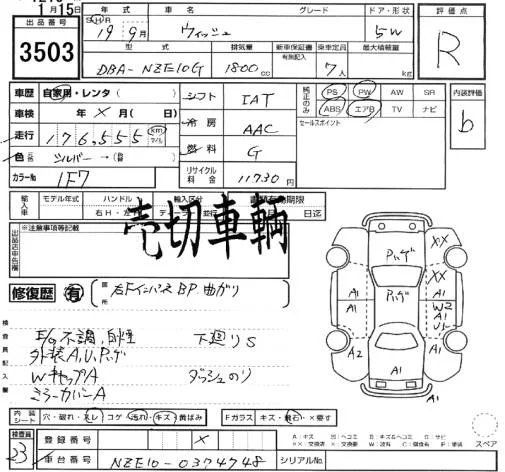 1月15日
出品番号
3503
年式 車名 グレード ドア・形状 評価点
SHR 19年9月 ウィッシュ 5W R
型式 排気量 新車保証書 乗車定員 最大積載量
有無記入
DBA-NZE10G 1800cc 7人 kg
車歴 自家用・レンタ( )
シフト IAT
純正のみ PS PW AW SR
ABS エアB TV ナビ
内装評価
b
車検 年×月( 日)
冷房 AAC
セールスポイント
走行 176,555 km マイル
燃料 G
色 シルバー→( )
リサイクル料金 11730円
カラーNo 1F7
輸入車 モデル年式 ハンドル 輸入区分 書類有効期限
右H・左H ディーラー・並行 月 日迄
売切車輌
※注意事項等記載
出品店申告欄
修復歴 有
箇所 右Fインパネ BP 曲がり
検査員記入欄
E/g不調、白煙 下廻りS
外装A,U,Pハゲ
WキャップA ダッシュのり
ミラーカバーA
XX
Pハゲ
XX
A1
Pハゲ
A1
W2
A1
U1
A2
A1
A1
内装シート 穴・破れ・スレ コゲ 汚れ・キズ 黄ばみ
Fガラス キズ・飛石・×要す
A:キズ U:ヘコミ B:キズ&ヘコミ S:サビ
スペア
検査員
23
登録番号 ×
車台番号 NZE10-0374748 シリアルNo.